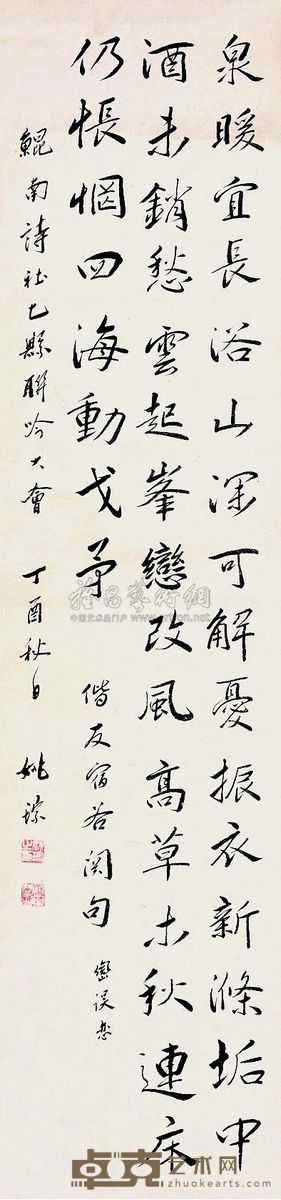 泉暖宜長浴山深可解憂振衣新滌垢中
酒未銷愁雲起峯戀改風高草木秋連床
仍悵惘四海動戈矛
偕友宿谷関句
巒誤戀
鯤南詩社七縣聯吟大會 丁酉秋日 姚琮
中国艺术品门户
卓克艺术网
www.zhuokearts.com